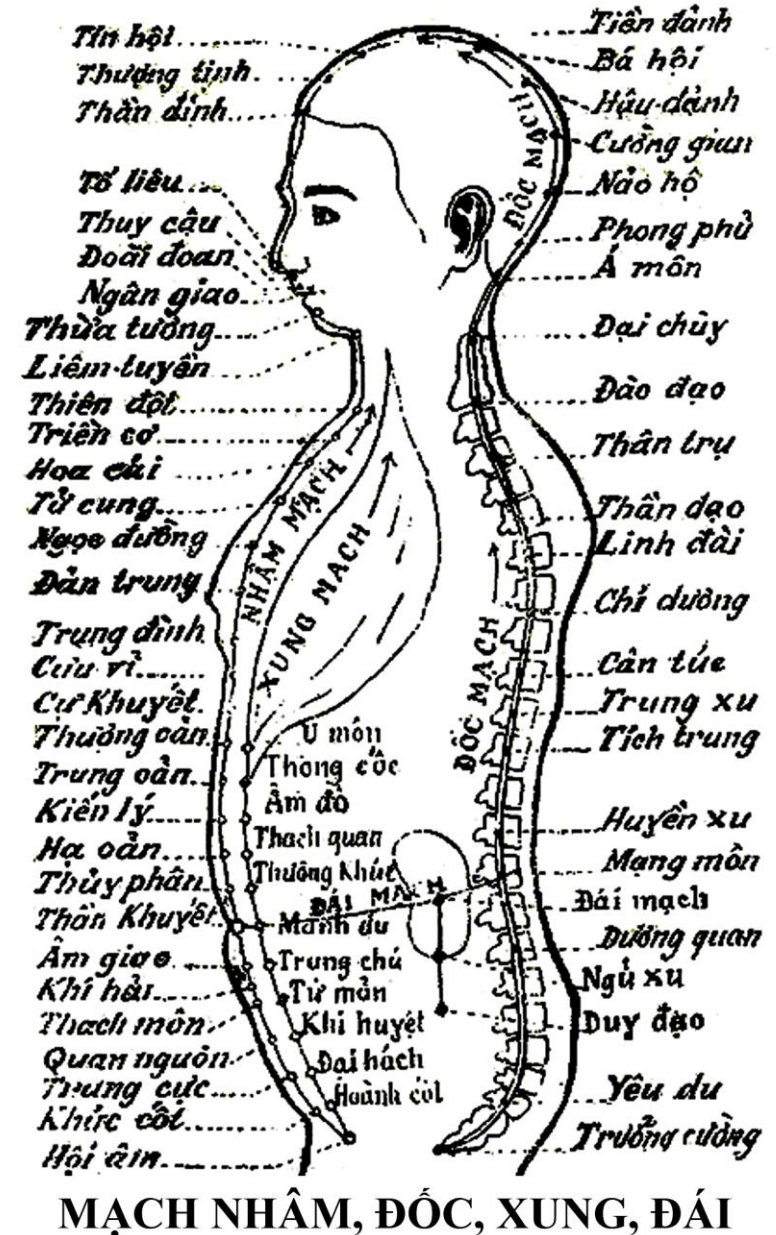 Tín hội
Thượng tịnh
Thần đình
Tố liêu
Thuy cậu
Đoài đoan
Ngân giao
Thừa tướng
Liêm tuyền
Thiên đột
Triền cơ
Hoa cái
Tử cung
Ngọc đường
Đản trung
Trung đình
Cưu vỉ
Cự Khuyết
Thưởng oản
Trung oản
Kiến lý
Hạ oản
Thủy phân
Thần Khuyết
Âm giao
Khí hải
Thach môn
Quan nguồn
Trung cực
Khúc cốt
Hội âm
Tiền đảnh
Bá hội
Hậu đảnh
Cưởng gian
Nảo hộ
Phong phủ
Á môn
Đại chùy
Đào đạo
Thân trụ
Thần đạo
Linh đài
Chí dương
Cân túc
Trung xu
Tích trung
Huyền xu
Mạng môn
Đái mạch
Dương quan
Ngủ xu
Duy đạo
Yêu du
Trưởng cường
ĐỐC MẠCH
NHÂM MẠCH
XUNG MẠCH
ĐỐC MẠCH
ĐÁI MẠCH
U môn
Thong cốc
Âm đô
Thạch quan
Thương Khúc
Manh du
Trung chú
Tứ mản
Khí huyệt
Đại hách
Hoành cốt
MẠCH NHÂM, ĐỐC, XUNG, ĐÁI